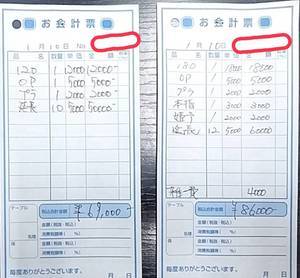 お会計票
1月10日 No.
品名 数量 単価 金額
120 1 12000 12000-
OP 1 5000 5000-
プラ 1 2000 2000-
延長 10 5000 50000-
テーブル
税込合計金額 ¥69,000-
金額(税抜・税込)
消費税額等( %)
金額(税抜・税込)
消費税額等( %)
毎度ありがとうございます。
お会計票
1月10日
品名 数量 単価 金額
180 1 18000 18000
OP 5000 5000
プラ 1 2000 2000
本指 1 3000 3000
2000 2000
延長 12 5000 60000
4000
テーブル
税込合計金額 ¥86000-
金額(税抜・税込)
消費税額等( %)
金額(税抜・税込)
消費税額等( %)
毎度ありがとうございます。